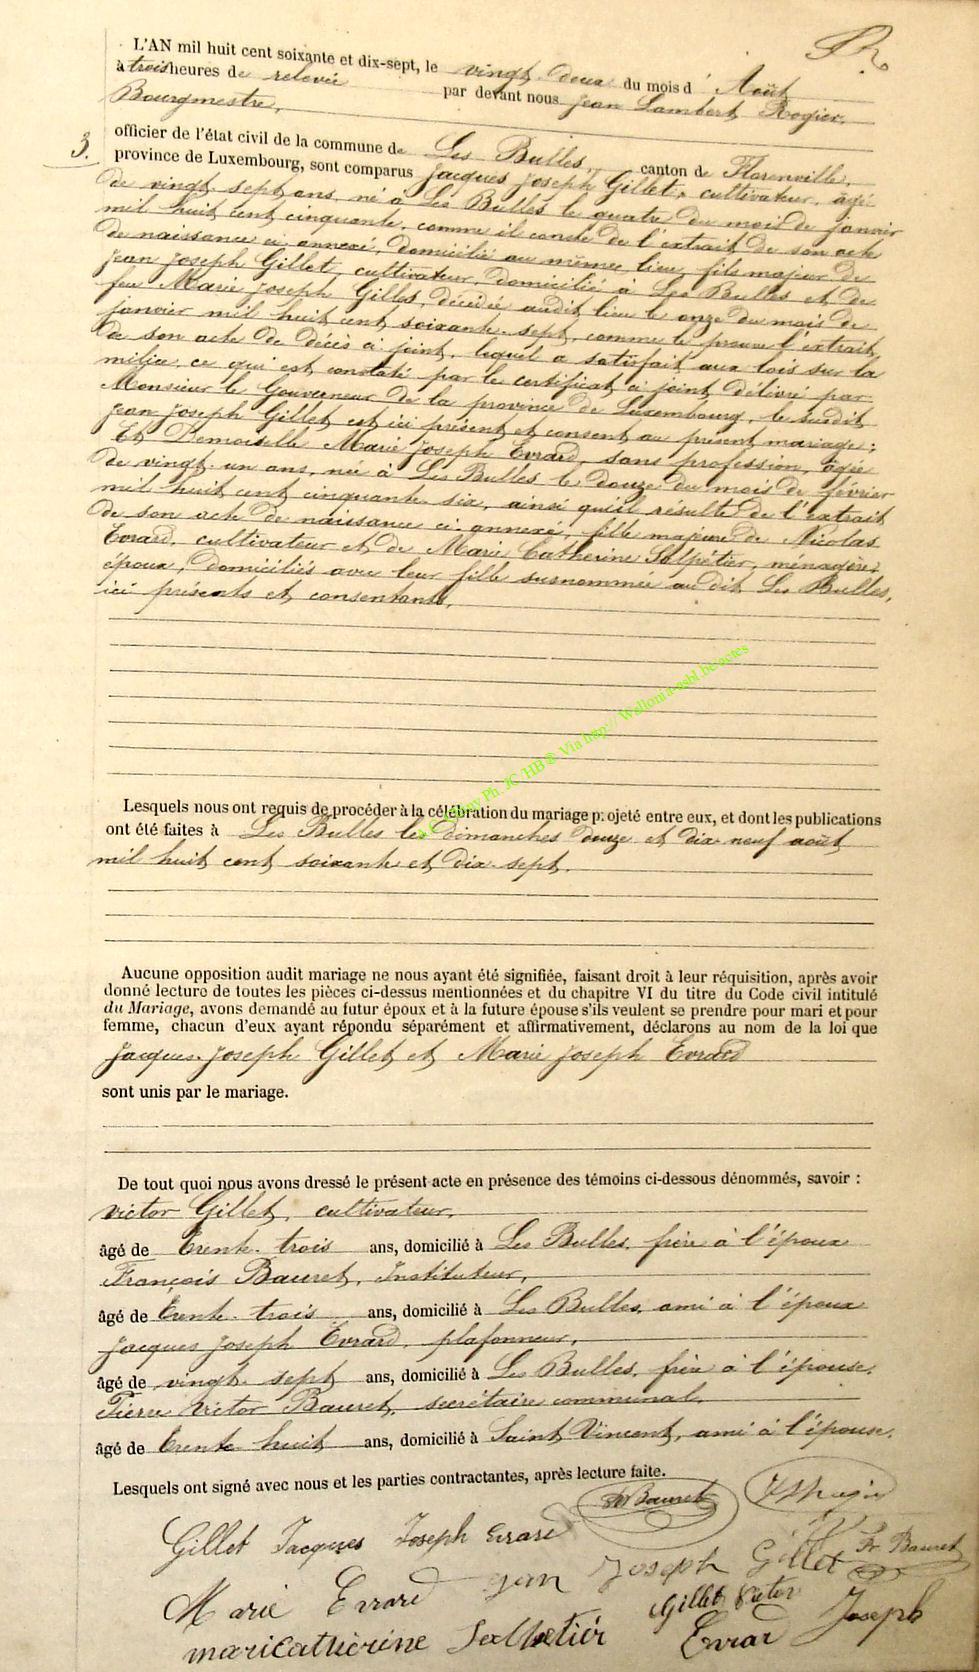 L'AN mil huit cent soixante et dix-sept, le vingt deux du mois d'Août
à trois heures de relevée par devant nous Jean Lambert Rogier,
Bourgmestre,
officier de l'état civil de la commune de Les Bulles, canton de Florenville,
3.
province de Luxembourg, sont comparus Jacques Joseph Gillet, cultivateur, âgé
de vingt-sept ans, né à Les Bulles le quatre du mois de Janvier
mil huit cent cinquante, comme il conste de l'extrait de son acte
de naissance ci-annexé, domicilié au même lieu, fils majeur de
Jean Joseph Gillet, cultivateur, domicilié à Les Bulles et de
feu Marie Joseph Gilles, décédée audit lieu le onze du mois de
janvier mil huit cent soixante-sept, comme le prouve l'extrait
de son acte de décès ci-joint, lequel a satisfait aux lois sur la
milice, ce qui est constaté par le certificat ci-joint délivré par
Monsieur le Gouverneur de la province de Luxembourg, le susdit
Jean Joseph Gillet est ici présent et consent au présent mariage;
Et Demoiselle Marie Joseph Evrard, sans profession, âgée
de vingt-un ans, née à Les Bulles le douze du mois de février
mil huit cent cinquante-six, ainsi qu'il résulte de l'extrait
de son acte de naissance ci-annexé, fille majeure de Nicolas
Evrard, cultivateur et de Marie Catherine Salpétier, ménagère,
époux, domiciliés avec leur fille susnommée audit Les Bulles,
ici présents et consentants.
A.C. Ph. JC HB @ Via http://Wallonia-asbl.be/actes
Lesquels nous ont requis de procéder à la célébration du mariage projeté entre eux, et dont les publications
ont été faites à Les Bulles les dimanches douze et dix-neuf août
mil huit cent soixante et dix-sept.
Aucune opposition audit mariage ne nous ayant été signifiée, faisant droit à leur réquisition, après avoir
donné lecture de toutes les pièces ci-dessus mentionnées et du chapitre VI du titre du Code civil intitulé
du Mariage, avons demandé au futur époux et à la future épouse s'ils veulent se prendre pour mari et pour
femme, chacun d'eux ayant répondu séparément et affirmativement, déclarons au nom de la loi que
Jacques-Joseph Gillet et Marie Joseph Evrard
sont unis par le mariage.
De tout quoi nous avons dressé le présent acte en présence des témoins ci-dessous dénommés, savoir :
Victor Gillet, cultivateur,
âgé de trente-trois ans, domicilié à Les Bulles, frère à l'époux
François Bauret, Instituteur,
âgé de trente-trois ans, domicilié à Les Bulles, ami à l'époux
Jacques Joseph Evrard, plafonneur,
âgé de vingt-sept ans, domicilié à Les Bulles, frère à l'épouse,
Pierre Victor Bauret, secrétaire communal,
âgé de trente-huit ans, domicilié à Saint Vincent, ami à l'épouse.
Lesquels ont signé avec nous et les parties contractantes, après lecture faite.
Bauret
Gillet Jacques Joseph Evrard
Fr. Bauret
Jean Joseph Gillet
Marie Evrard
Gillet Victor
maricathérine Salpetiér
Evrard Joseph